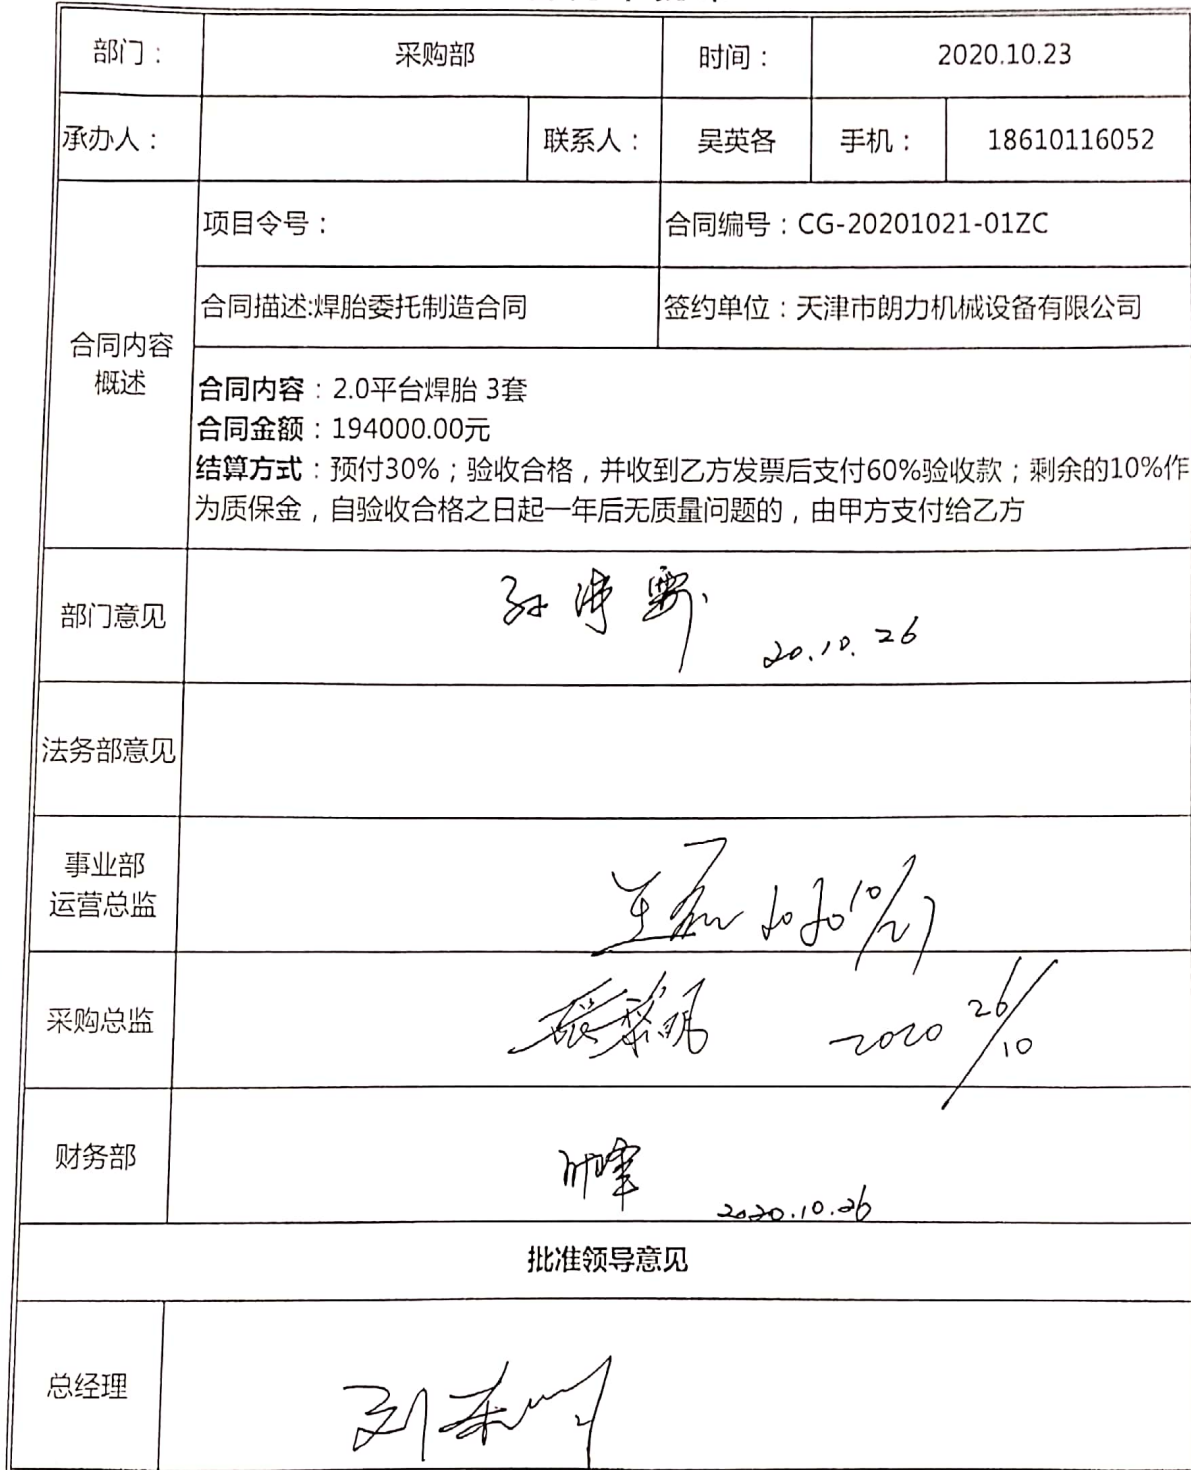 部门： 采购部 时间： 2020.10.23
承办人： 联系人： 吴英各 手机： 18610116052
项目令号： 合同编号：CG-20201021-01ZC
合同描述:焊胎委托制造合同 签约单位：天津市朗力机械设备有限公司
合同内容
概述
合同内容：2.0平台焊胎 3套
合同金额：194000.00元
结算方式：预付30%；验收合格，并收到乙方发票后支付60%验收款；剩余的10%作
为质保金，自验收合格之日起一年后无质量问题的，由甲方支付给乙方
部门意见
20.10.26
法务部意见
事业部
运营总监
2020 10/27
采购总监
2020 26/10
财务部
2020.10.26
批准领导意见
总经理